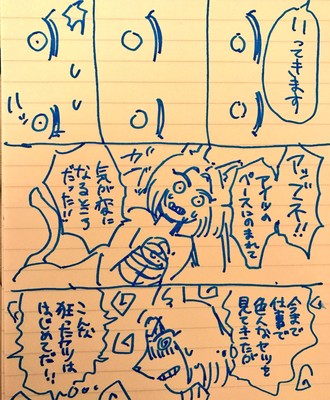 いってきます
ハッ
アッブネ!!
アイツの
ペースにのまれて
気が変に
なるところ
だった!!
今まで
仕事で
色んなヤツを
見てきたが
こんな
狂ったヤツは
はじめてだ!!